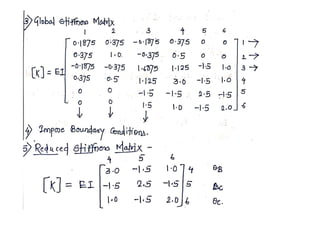 3) Global Stiffness Matrix
1 2 3 4 5 6
0.1875 0.375 -0.1875 0.375 0 0 1 →
0.375 1.0 -0.375 0.5 0 0 2 →
[K] = EI -0.1875 -0.375 1.6875 1.125 -1.5 1.0 3 →
0.375 0.5 1.125 3.0 -1.5 1.0 4
0 0 -1.5 -1.5 2.5 -1.5 5
0 0 1.5 1.0 -1.5 2.0 6
↓ ↓ ↓
4) Impose Boundary Conditions.
5) Reduced Stiffness Matrix -
4 5 6
3.0 -1.5 1.0 4 θB
[K] = EI -1.5 2.5 -1.5 5 Δc
1.0 -1.5 2.0 6 θc.